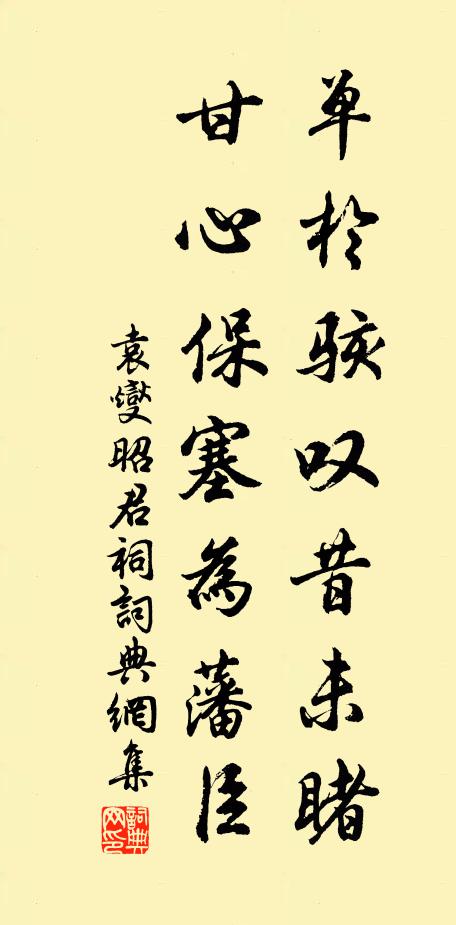 单於骇叹昔未睹
甘心保塞為藩臣
袁燮昭君祠詞典網集
詞典網印